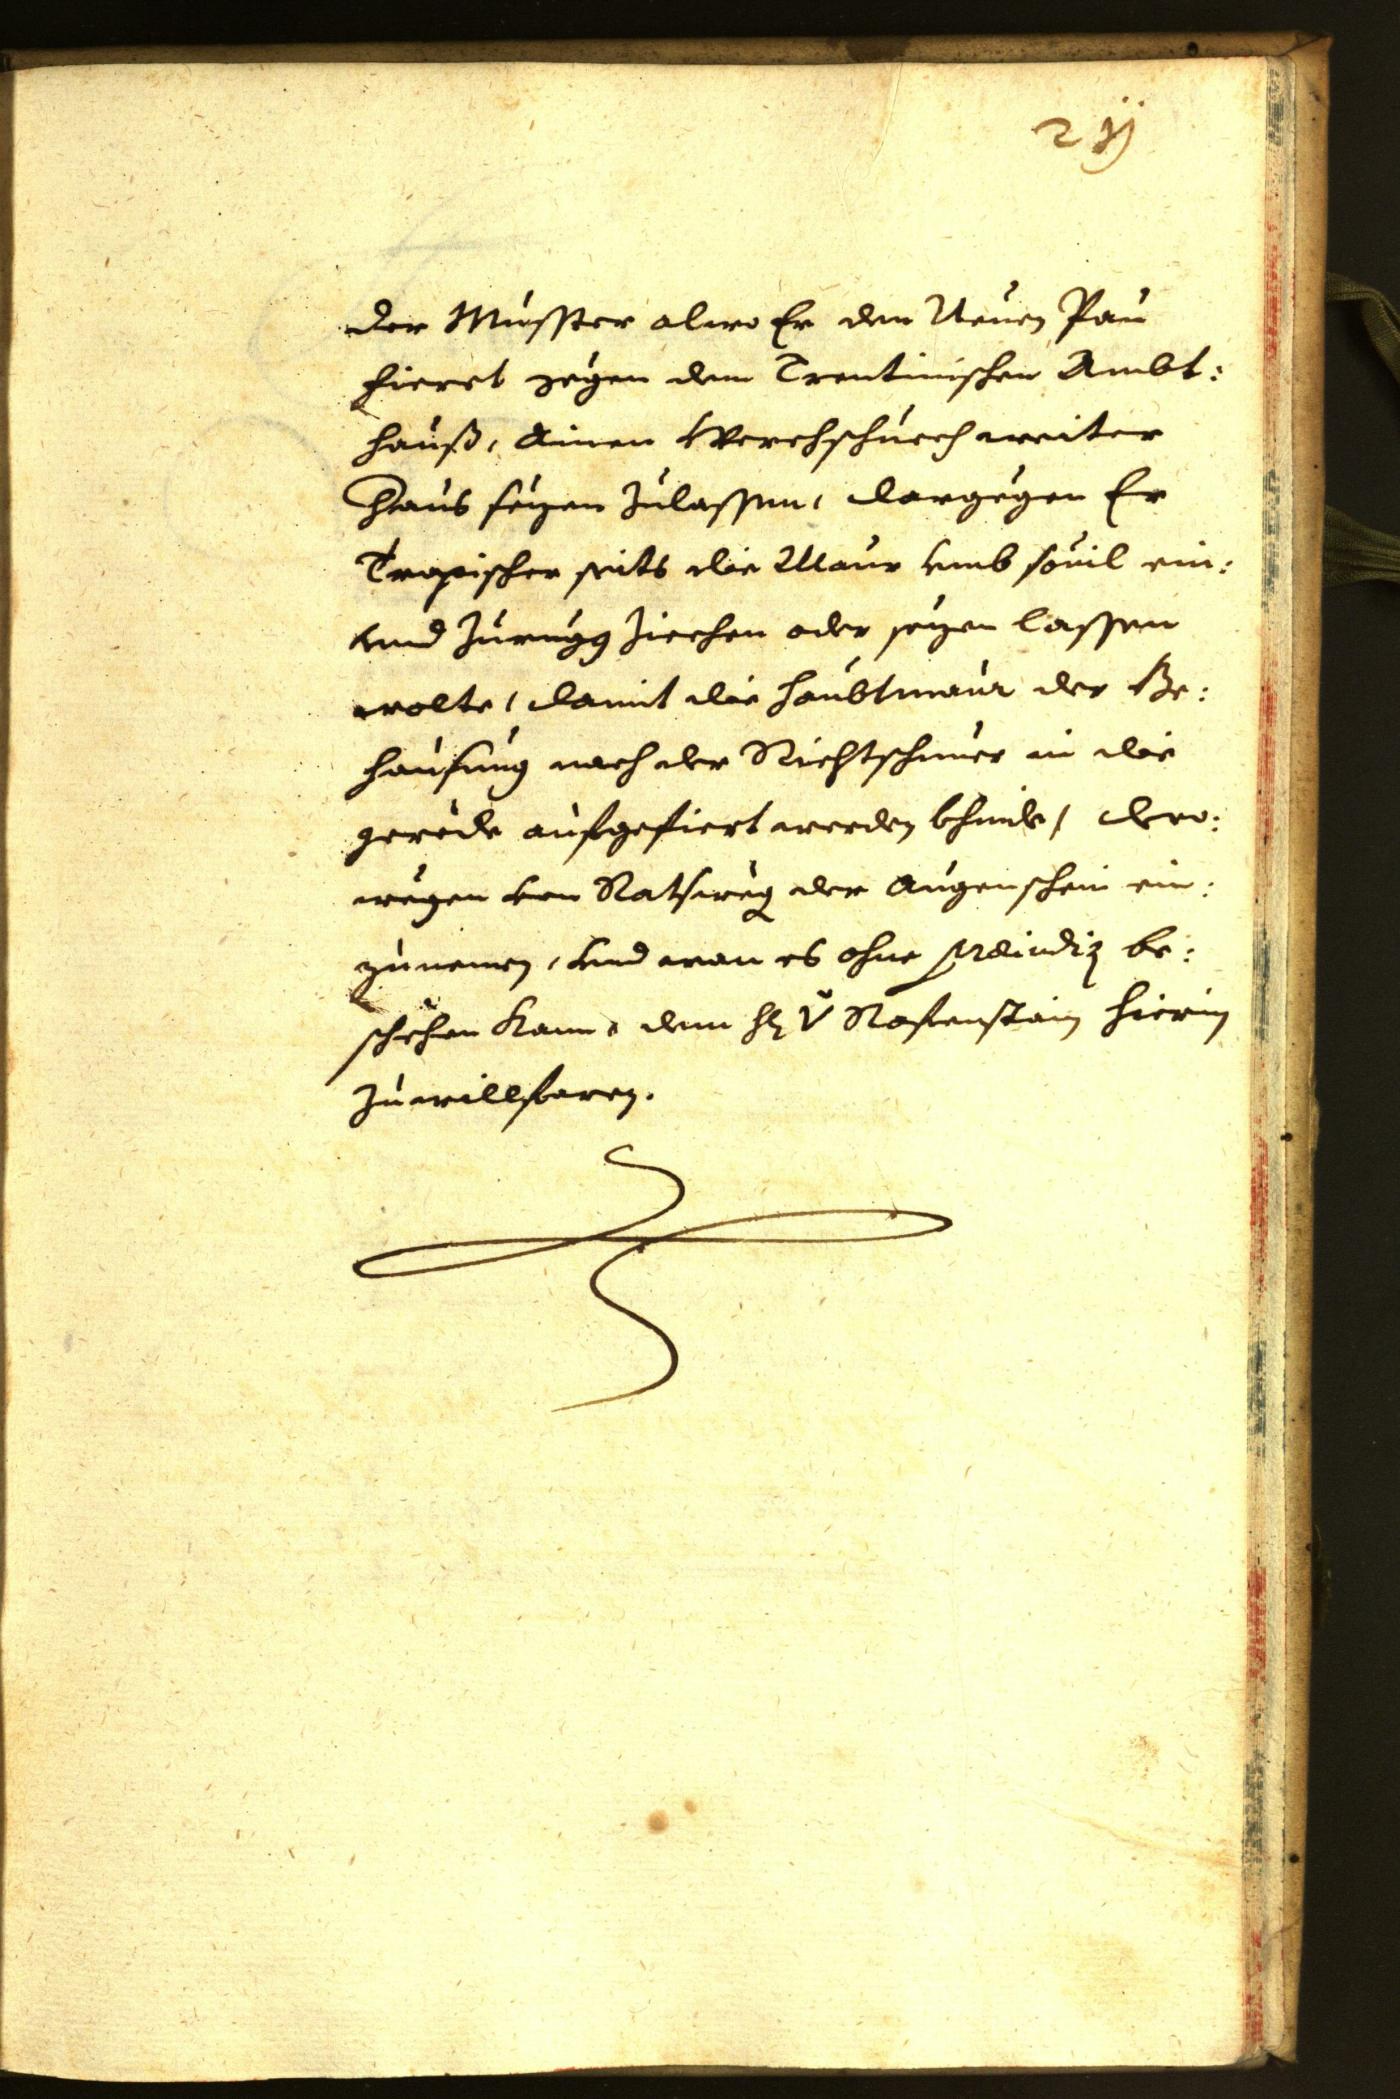 der Musster alwo Er den Neuen Pau
fieret gegen dem Trentinischen Ambt:
hauß, Ainen Werchschuech weiter
Haus sezen zulassen, dargegen Er
Trapischer seits die Maur umb souil ein:
und zurugg ziechen oder sezen lassen
wolte, damit die haubtmaur der Be:
hausung nach der Richtschnuer in die
gerede aufgefiert werden khinde, dero:
wegen von Ratsweg der Augenschein ein:
zunemen, und wan es ohne præiudiz be:
schehen kann, dem h v Rosenstain hierin
zuwillfaren.